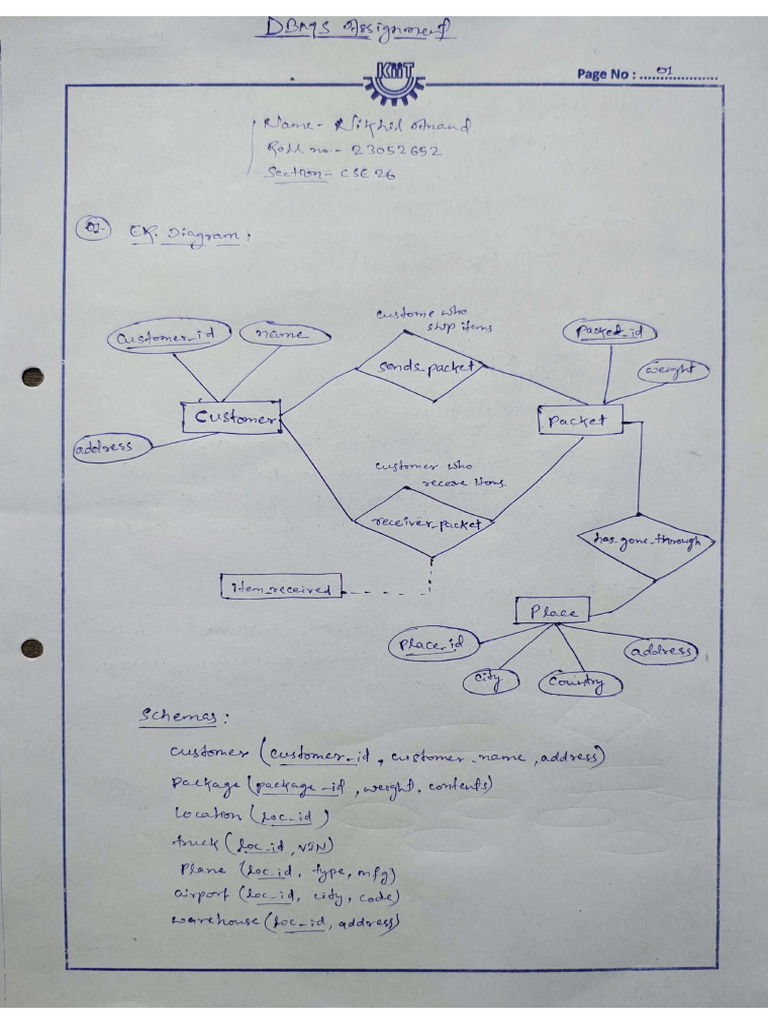 DBMS Assignment
KiiT
Page No : 01
Name - Nikhil Anand
Roll no - 23052652
Section - CSE 26
Q1. ER. Diagram:
custome who
ship items
Customer_id
name
sends_packet
Packet_id
weight
Customer
Packet
address
customer who
receve items.
receiver_packet
has_gone_through
item_received
Place
Place_id
address
city
country
Schemas:
customer (customer_id, customer_name, address)
Package (package_id, weight, contents)
Location (loc_id)
truck (loc_id, VIN)
Plane (loc_id, type, mfg)
airport (loc_id, city, code)
warehouse (loc_id, address)